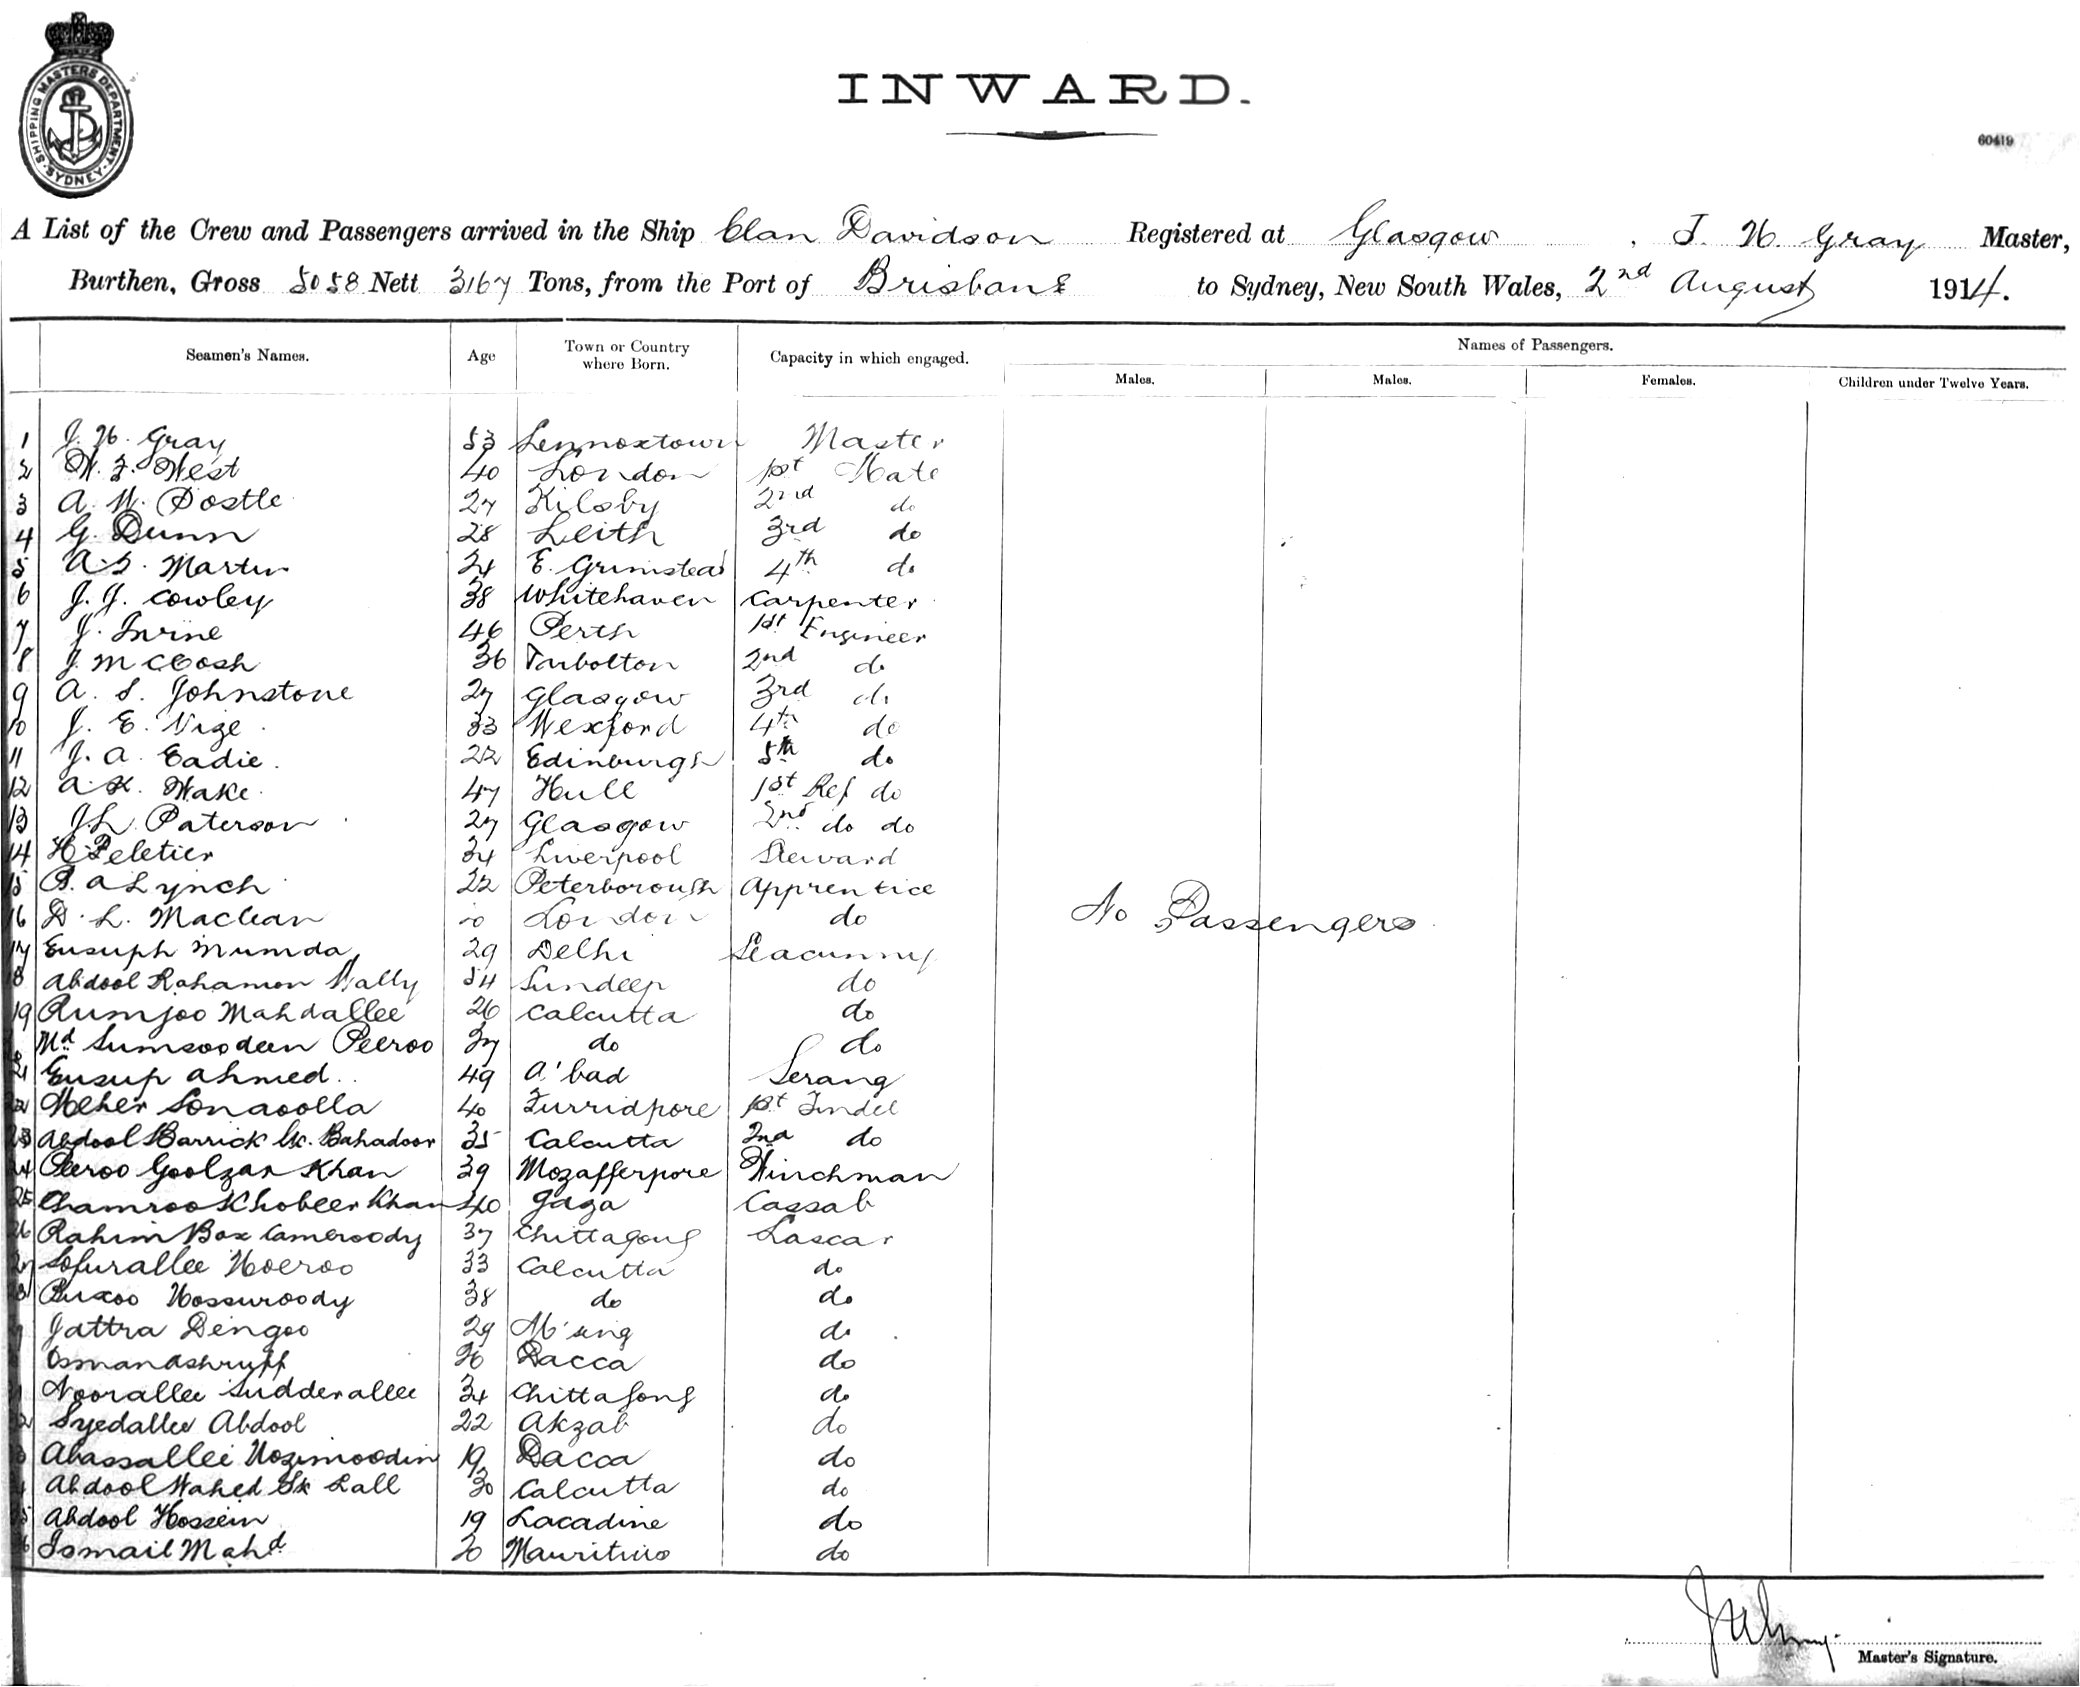 SHIPPING MASTERS DEPARTMENT
SYDNEY
INWARD.
60419
A List of the Crew and Passengers arrived in the Ship Clan Davidson Registered at Glasgow, J. W. Gray Master,
Burthen, Gross 5058 Nett 3167 Tons, from the Port of Brisbane to Sydney, New South Wales, 2nd August 1914.
Seamen's Names. Age Town or Country where Born. Capacity in which engaged. Names of Passengers.
Males. Males. Females. Children under Twelve Years.
1 J. W. Gray 53 Lennoxtown Master
2 W. J. West 40 London 1st Mate
3 A. W. Postle 27 Kilsby 2nd do
4 G. Dunn 28 Leith 3rd do
5 A. Martin 24 E. Grimstead 4th do
6 J. J. Cowley 38 Whitehaven Carpenter
7 J. Irvine 46 Perth 1st Engineer
8 J. McCosh 36 Tarbolton 2nd do
9 A. S. Johnstone 27 Glasgow 3rd do
10 J. E. Vize 33 Wexford 4th do
11 J. A. Eadie 22 Edinburgh 5th do
12 A. K. Wake 47 Hull 1st Ref do
13 J. L. Paterson 27 Glasgow 2nd do do
14 H. Peletier 34 Liverpool Steward
15 B. A Lynch 22 Peterborough Apprentice
16 D. L. Maclean 20 London do No Passengers
17 Eusuph Mumda 29 Delhi Seacunny
18 Abdool Rahamon Wally 54 Sundeep do
19 Rumjoo Mahdallee 26 Calcutta do
20 Md Sumsoodeen Peeroo 37 do do
21 Eusup Ahmed 49 A'bad Serang
22 Meher Sonaoolla 40 Furridpore 1st Tindel
23 Abdool Barrick Sk. Bahadoor 35 Calcutta 2nd do
24 Peeroo Goolzar Khan 39 Mozafferpore Winchman
25 Chamroo Khobeer Khan 40 Gaza Cassab
26 Rahim Box Cameroody 37 Chittagong Lascar
27 Sofurallee Hoeroo 33 Calcutta do
28 Buxoo Hossuroody 38 do do
Jattra Dengoo 29 M'sing do
Osman Ashruff 26 Dacca do
Noorallee Sudderallee 34 Chittagong do
Syedallee Abdool 22 Akzab do
Abassallee Nozimoodin 19 Dacca do
Abdool Wahed Sk Lall 30 Calcutta do
Abdool Hossein 19 Lacadine do
Ismail Mahd 20 Mauritius do
Master's Signature.